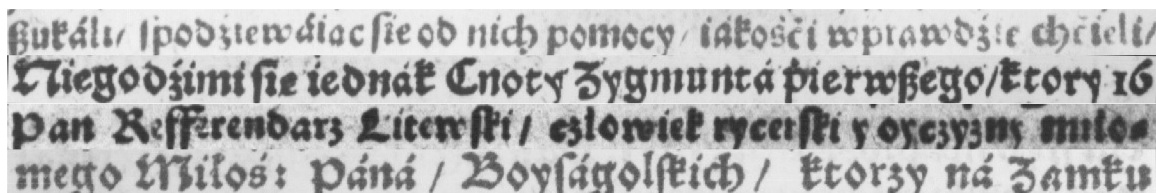 ßukáli/ spodziewáiąc sie od nich pomocy/ iákośći wprawdźie chćieli/
Niegodźi mi sie iednák Cnoty Zygmuntá pierwßego/ ktory 16
Pan Refferendarz Litewski/ człowiek rycerski y oyczyzny miło⸗
mego Miłoś: Páná / Boyságolskich / ktorzy ná Zamku